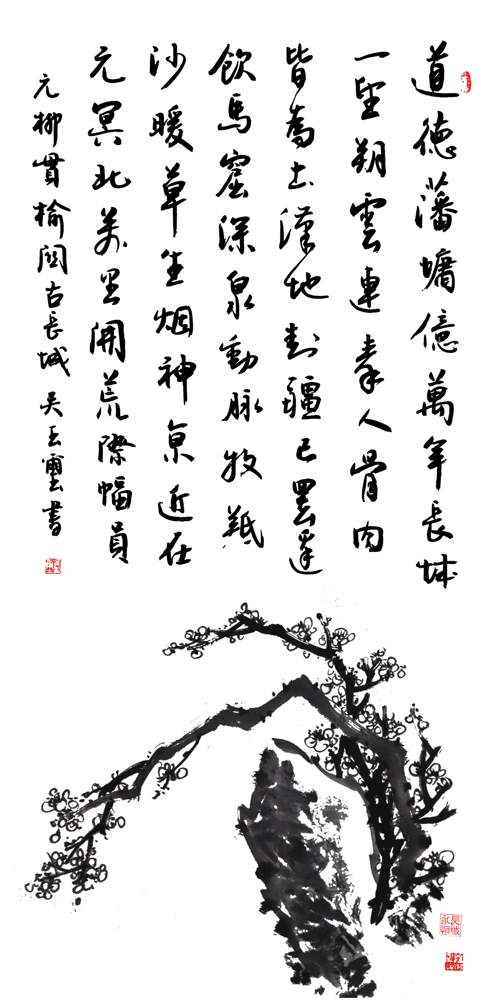 道德藩墉億萬年長城
一望朔雲連秦人骨肉
皆為土漢地封疆已罷邊
飲馬窟深泉動脉牧羝
沙暖草生烟神京近在
元冥北萬里開荒際幅員
元柳貫榆関古長城 吴玉書